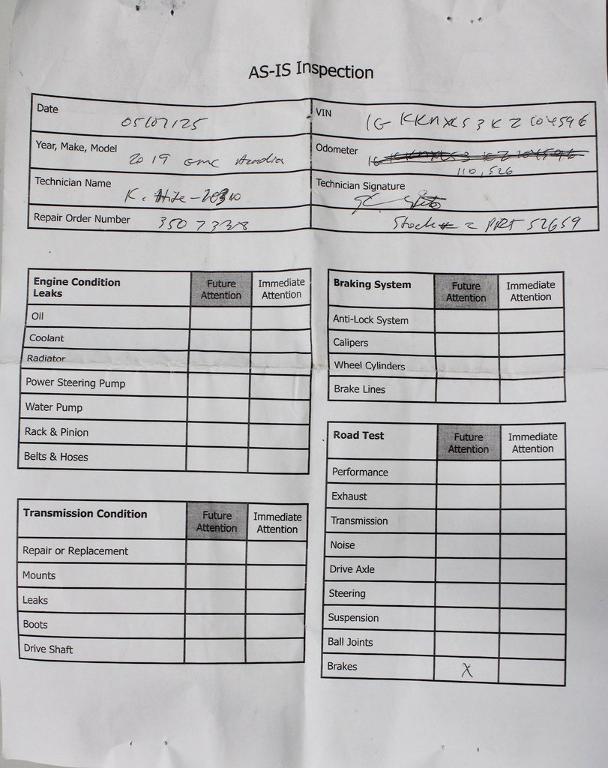 AS-IS Inspection
Date 05/07/25 VIN 1G KKNXLS3KZ104596
Year, Make, Model 2019 GMC Acadia Odometer
110,526
Technician Name Technician Signature
Repair Order Number 3507338 Stock # = PRT 52659
Engine Condition Leaks Future Attention Immediate Attention
Oil
Coolant
Radiator
Power Steering Pump
Water Pump
Rack & Pinion
Belts & Hoses
Transmission Condition Future Attention Immediate Attention
Repair or Replacement
Mounts
Leaks
Boots
Drive Shaft
Braking System Future Attention Immediate Attention
Anti-Lock System
Calipers
Wheel Cylinders
Brake Lines
Road Test Future Attention Immediate Attention
Performance
Exhaust
Transmission
Noise
Drive Axle
Steering
Suspension
Ball Joints
Brakes X